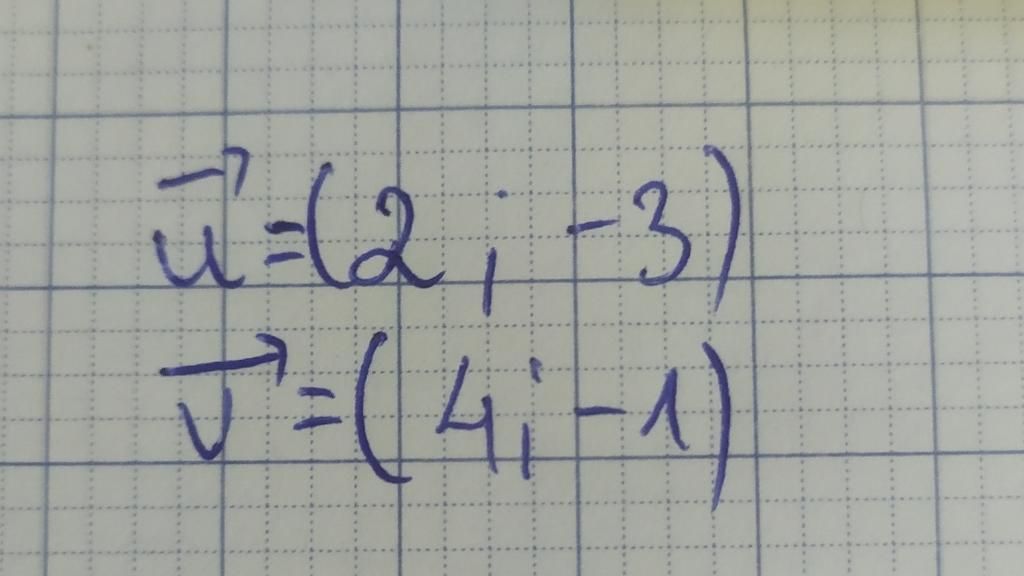 u⃗ = (2 ; -3)
v⃗ = (4 ; -1)